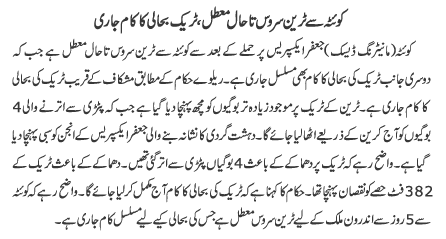 کوئٹہ سے ٹرین سروس تاحال معطل، ٹریک بحالی کا کام جاری
کوئٹہ (مانیٹرنگ ڈیسک) جعفر ایکسپریس پر حملے کے بعد سے کوئٹہ سے ٹرین سروس تاحال معطل ہے جب کہ
دوسری جانب ٹریک کی بحالی کا کام بھی مسلسل جاری ہے۔ ریلوے حکام کے مطابق مشکاف کے قریب ٹریک کی بحالی
کا کام جاری ہے۔ ٹرین کے ٹریک پر موجود زیادہ تر بوگیوں کو مچھ پہنچا دیا گیا ہے جب کہ پٹڑی سے اترنے والی 4
بوگیوں کو آج کرین کے ذریعے اٹھا لیا جائے گا۔ دہشت گردی کا نشانہ بننے والی جعفر ایکسپریس کے انجن کو سبی پہنچا دیا
گیا ہے۔ واضح رہے کہ ٹریک پر دھماکے کے باعث 4 بوگیاں پٹڑی سے اتر گئی تھیں۔ دھماکے کے باعث ٹریک کے
382 فٹ حصے کو نقصان پہنچا تھا۔ حکام کا کہنا ہے کہ ٹریک کی بحالی کا کام آج مکمل کر لیا جائے گا۔ واضح رہے کہ کوئٹہ
سے 5 روز سے اندرون ملک کے لیے ٹرین سروس معطل ہے جس کی بحالی کیے لیے مسلسل کام جاری ہے۔